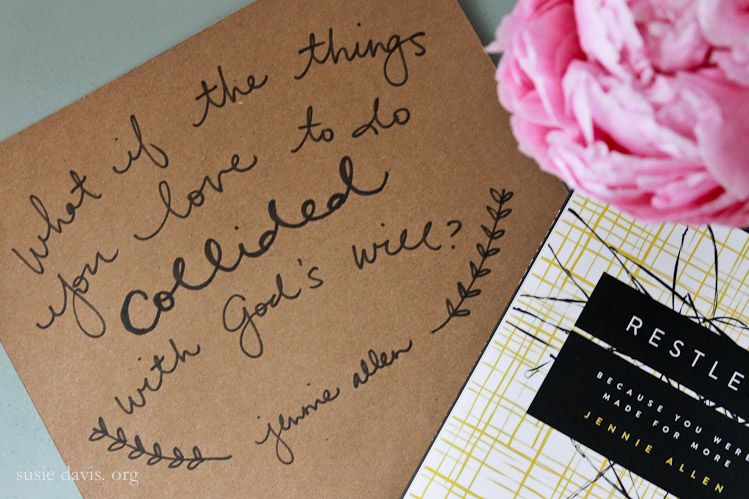 What if the things
you love to do
collided
with God's will?
jennie allen
RESTLE
BECAUSE YOU WERE
MADE FOR MORE
JENNIE ALLEN
susie davis. org